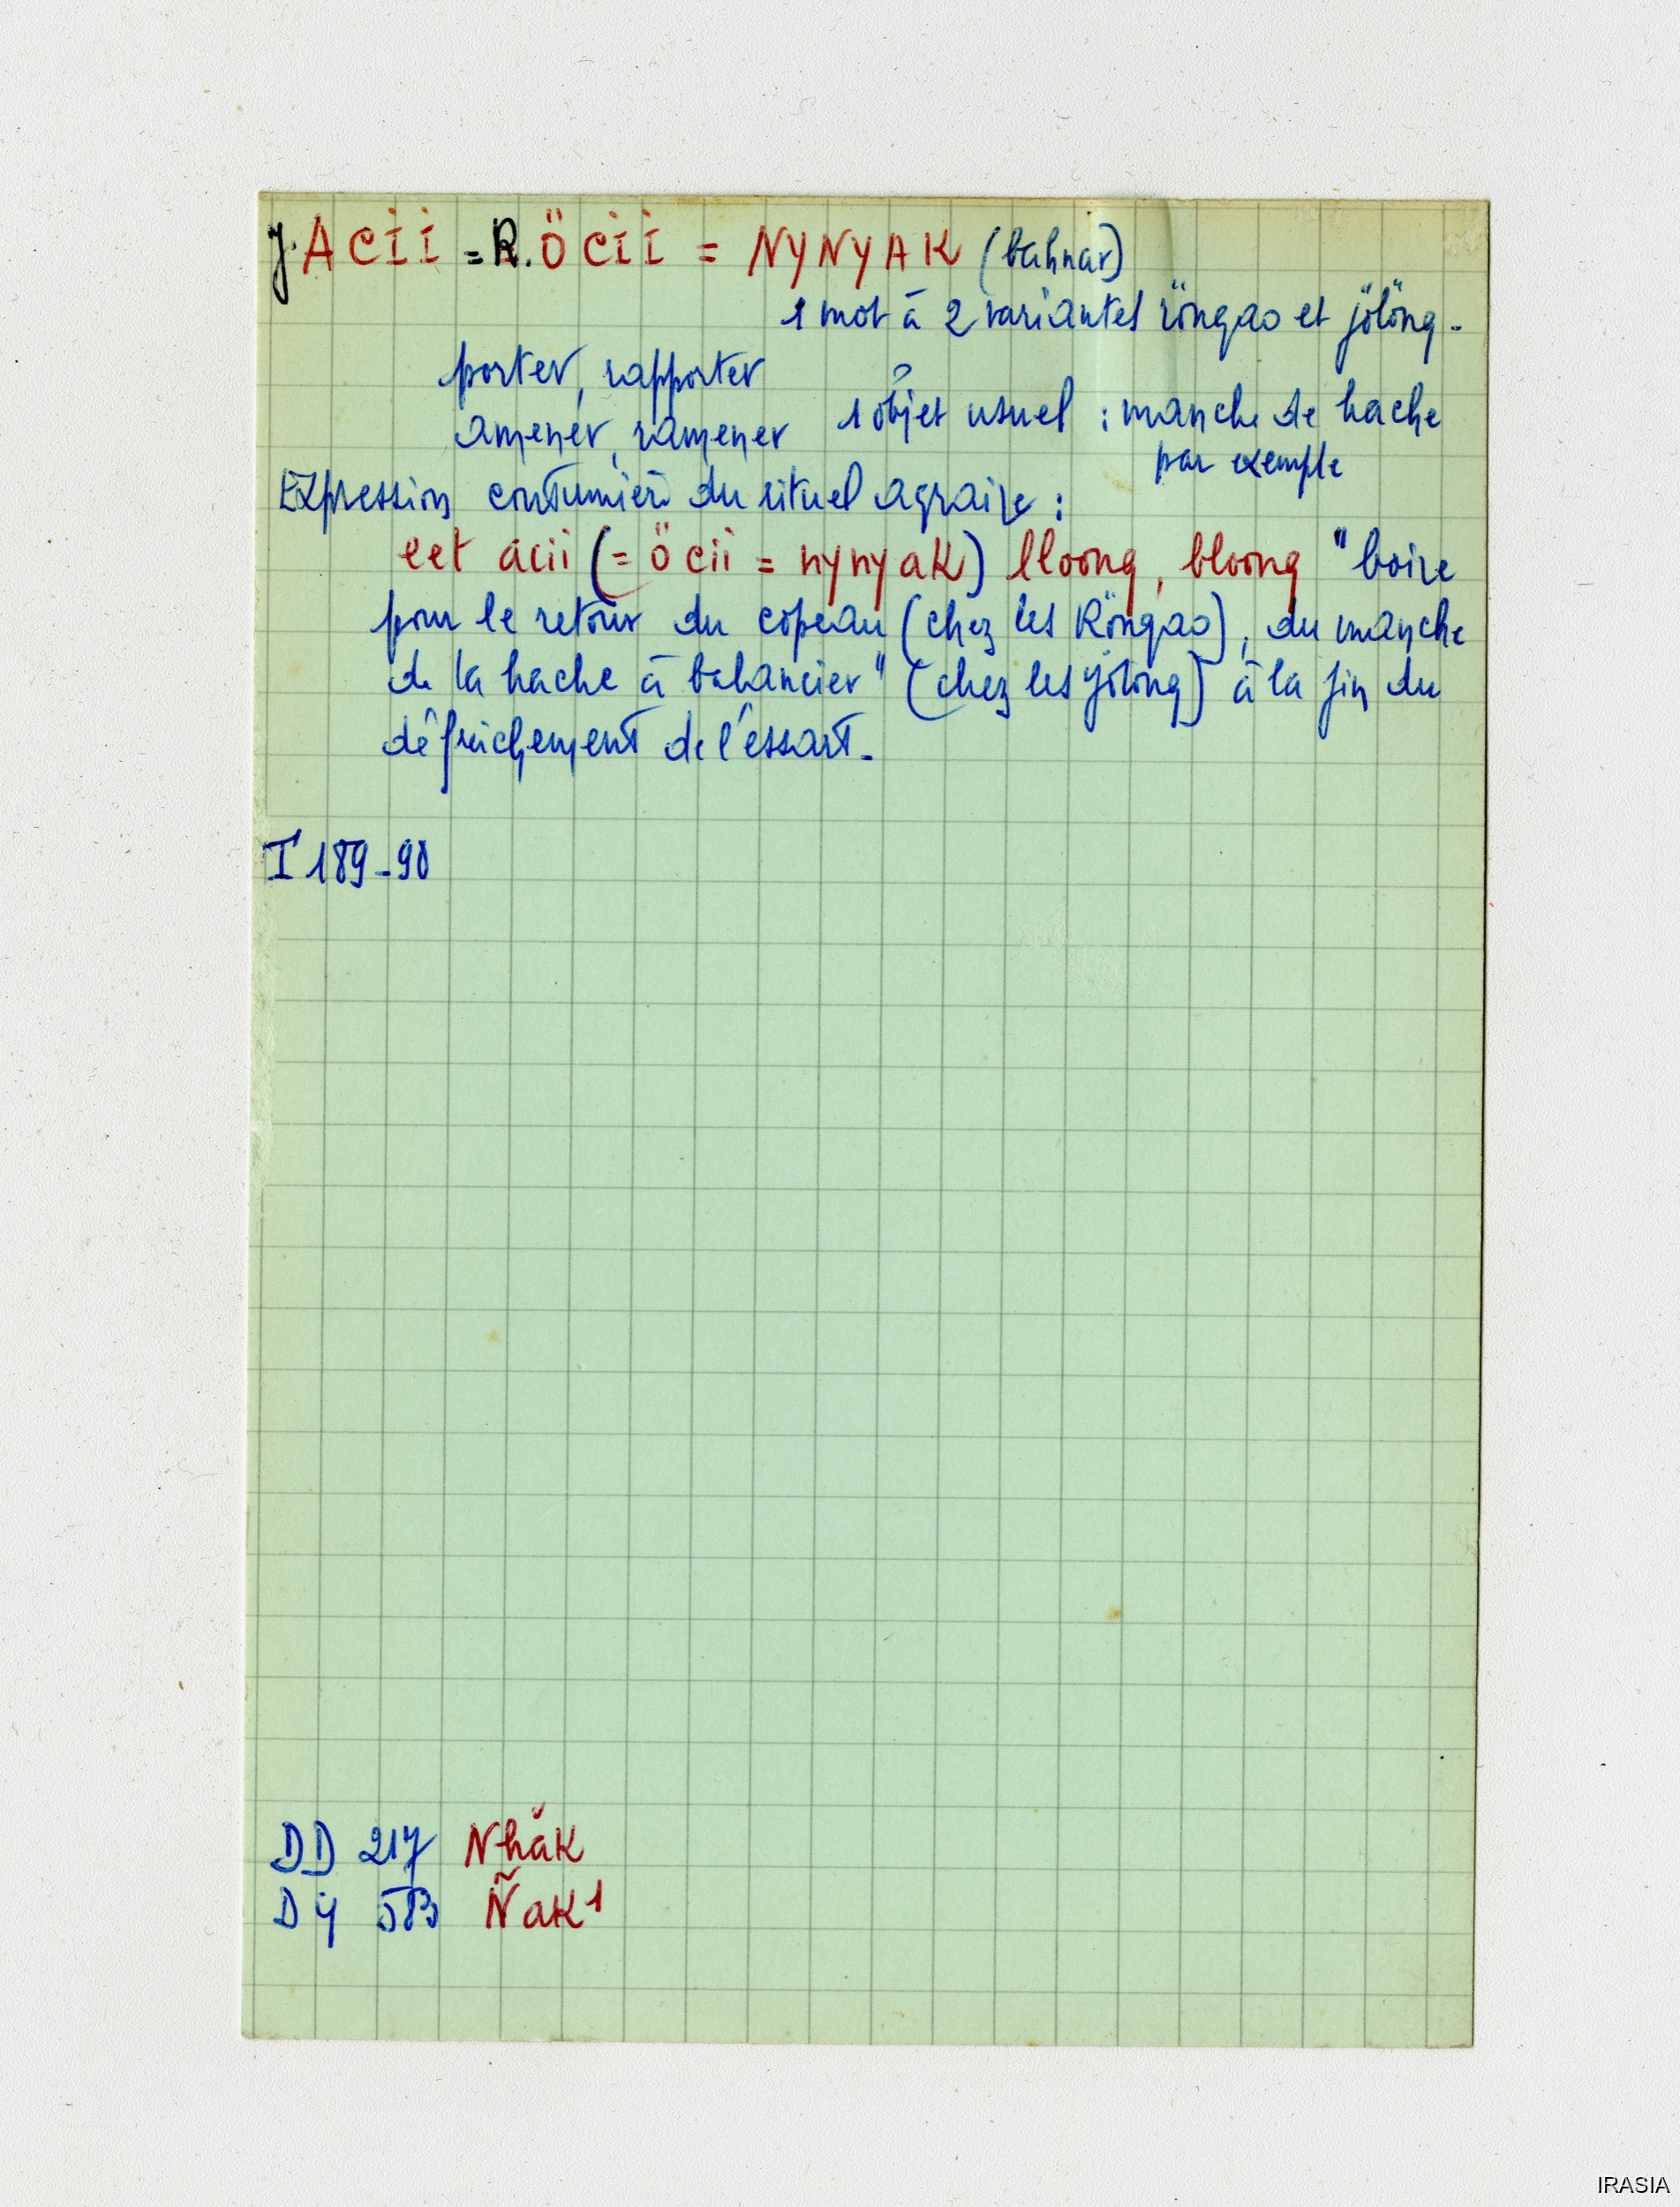 J. ACII = R. ÖCII = NYNYAK (bahnar)
1 mot à 2 variantes röngao et jölöng -
porter, rapporter
amener, ramener 1 objet usuel : manche de hache
par exemple
Expression coutumière du rituel agraire :
eet acii (= öcii = nynyak) lloong, bloong "boire
pour le retour du copeau (chez les Röngao), du manche
de la hache à balancier" (chez les Jölong) à la fin du
défrichement de l'essart -
I 189-90
DD 217 Nhăk
DY 583 Ñak¹
IRASIA